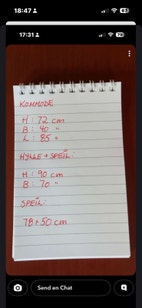 18:47
76
17:31
70
KOMMODE
H: 72 cm
B: 40 "
L: 85 "
HYLLE + SPEIL:
H: 90 cm
B: 70 "
SPEIL:
78 + 50 cm
Send en Chat